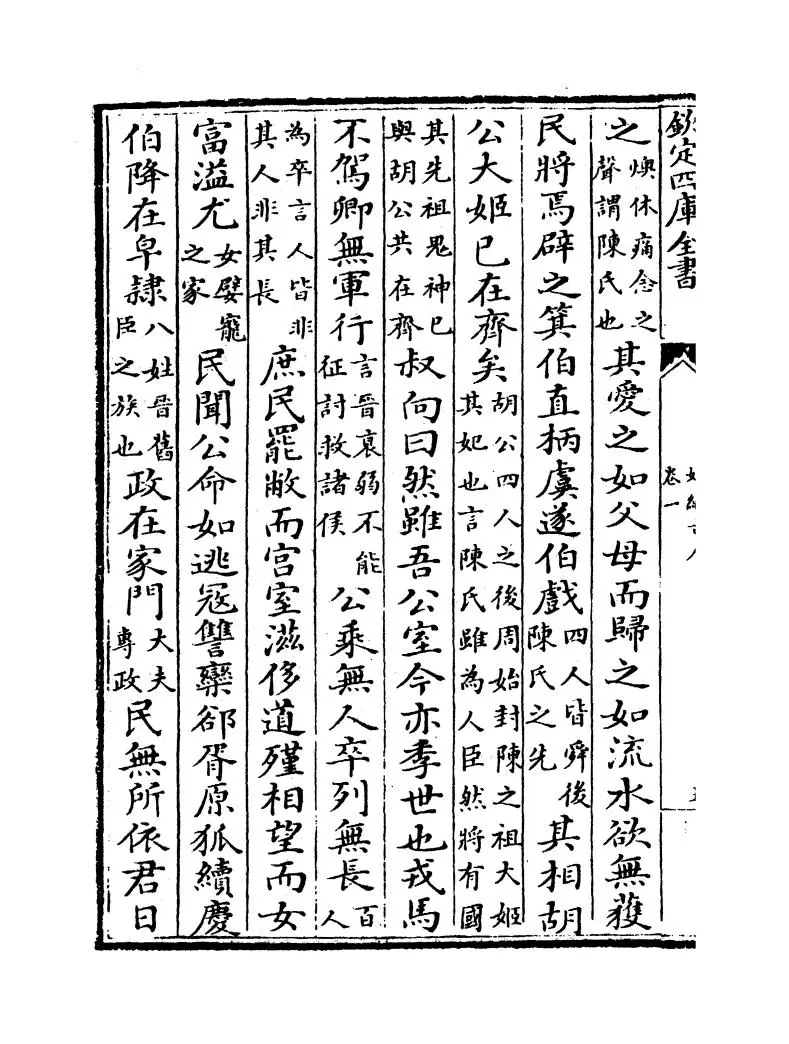 欽定四庫全書
卷一
之燠休痛念之聲謂陳氏也其愛之如父母而歸之如流水欲無獲
民將焉辟之箕伯直柄虞遂伯戲四人皆舜後陳氏之先其相胡
公大姬已在齊矣胡公四人之後周始封陳之祖大姬其妃也言陳氏雖為人臣然將有國
其先祖鬼神已與胡公共在齊叔向曰然雖吾公室今亦季世也戎馬
不駕卿無軍行言晉衰弱不能征討救諸侯公乘無人卒列無長百人
為卒言人皆非其人非其長庶民罷敝而宮室滋侈道殣相望而女
富溢尤女嬖寵之家民聞公命如逃寇讐欒郤胥原狐續慶
伯降在皁隸八姓晉舊臣之族也政在家門大夫專政民無所依君日